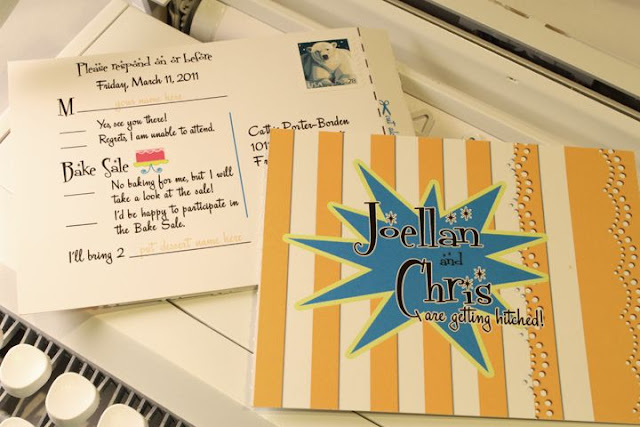 Please respond on or before
Friday, March 11, 2011
M your name here
Yes, see you there!
Regrets, I am unable to attend
Bake Sale
No baking for me, but I will
take a look at the sale!
I'd be happy to participate in
the Bake Sale.
I'll bring 2 put dessert name here
28
Cathy Porter-Borden
101
F
Joellan
and
Chris
are getting hitched!